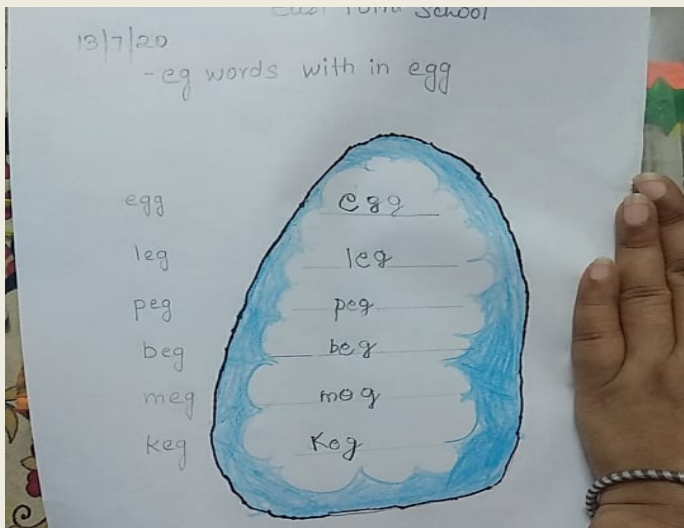 School
13/7/20
-eg words with in egg
egg egg
leg leg
peg peg
beg beg
meg meg
keg Keg